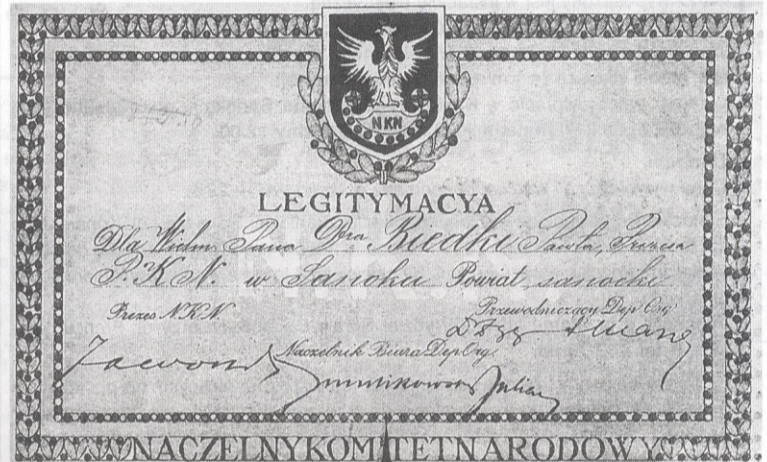 NKN
LEGITYMACYA
Dla Wielm. Pana Dra Biedki Pawła, Prezesa
P. K. N. w Sanoku Powiat sanocki
Prezes N.K.N. Przewodniczący Dep. Org.
Jaworski
Naczelnik Biura Dep. Org.
Julian
NACZELNY KOMITET NARODOWY